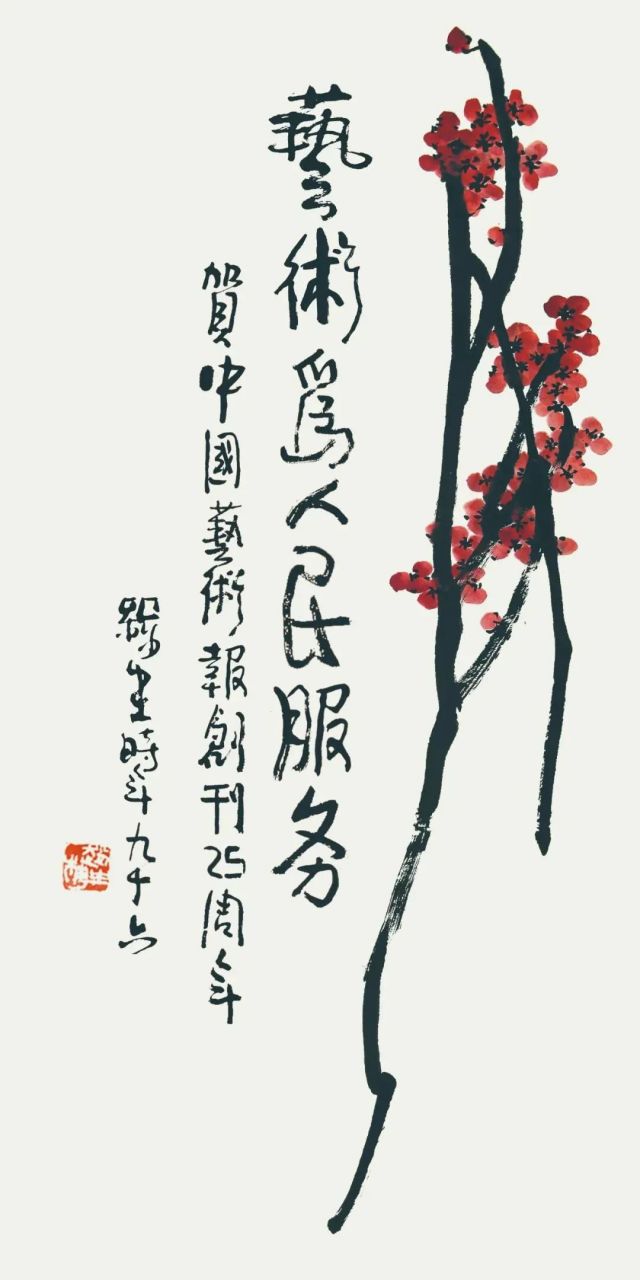 藝術爲人民服务
賀中國藝術報創刊25周年
時年九十六